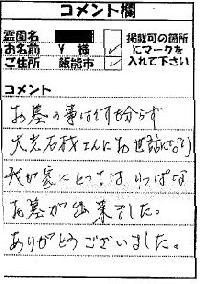 コメント欄
霊園名
お名前 V 様 ✓
ご住所 飯能市 ✓
掲載可の箇所
にマークを
入れて下さい
コメント
お墓の事は何も分らず
大光石材さんにお世話になり
我が家にとってはりっぱな
お墓が出来ました。
ありがとうございました。